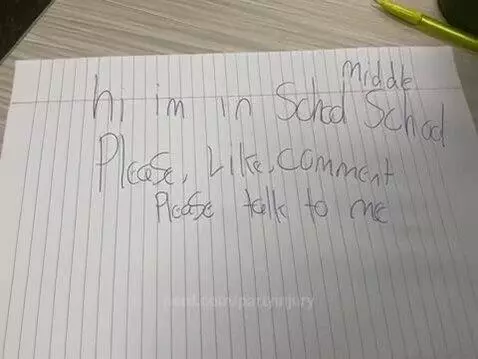 middle
hi im in School School
Please, Like, comment
Please talk to me